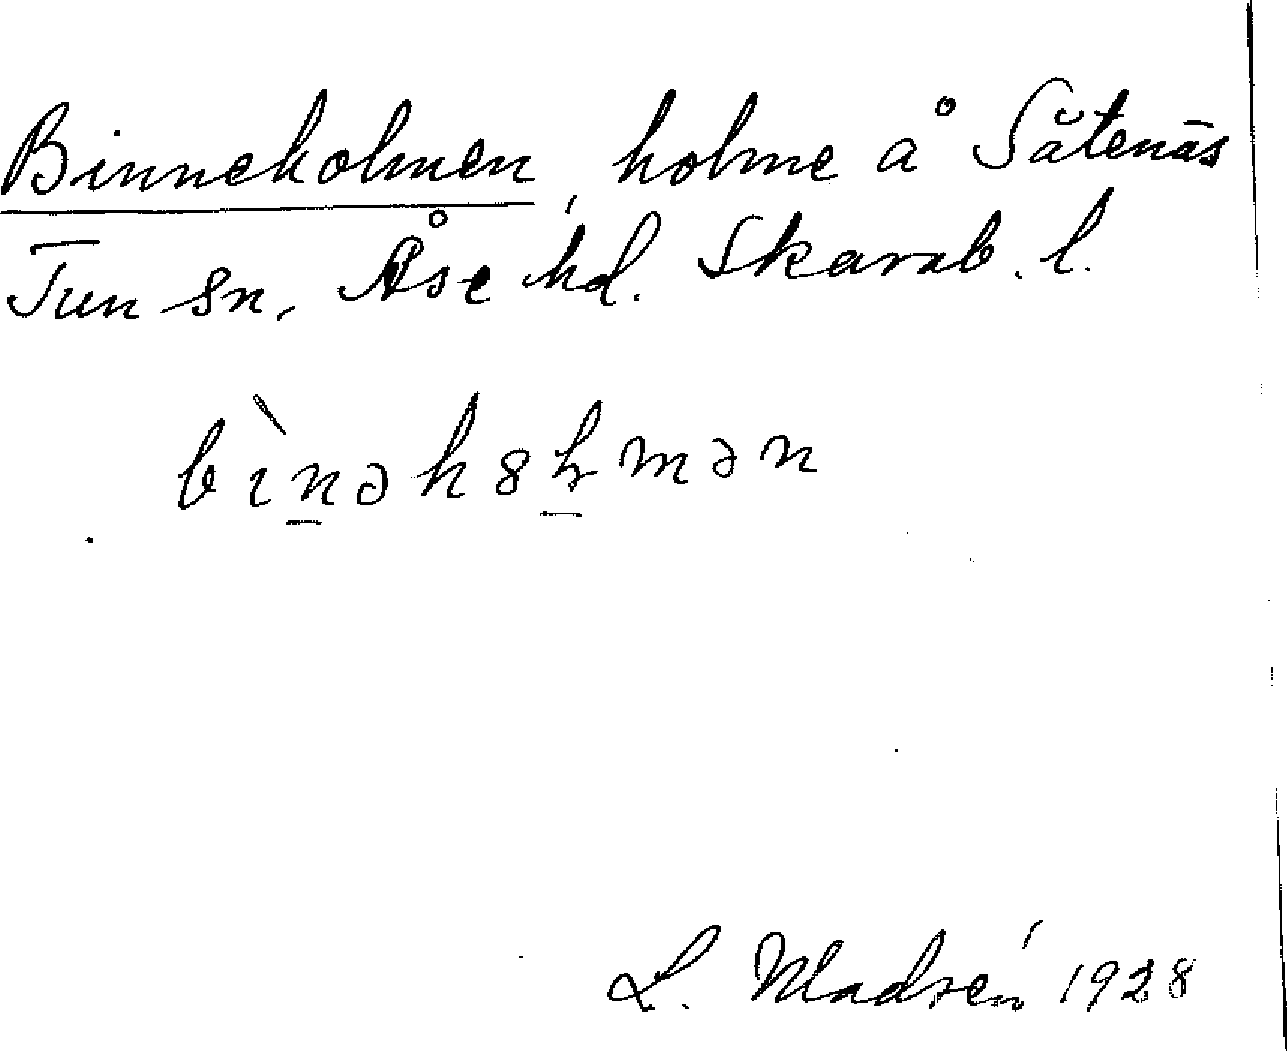 Binneholmen, holme å Såtenäs
Tun sn, Åse hd. Skarab. l.
bìnəh8ɫmən
L. Madsén 1928